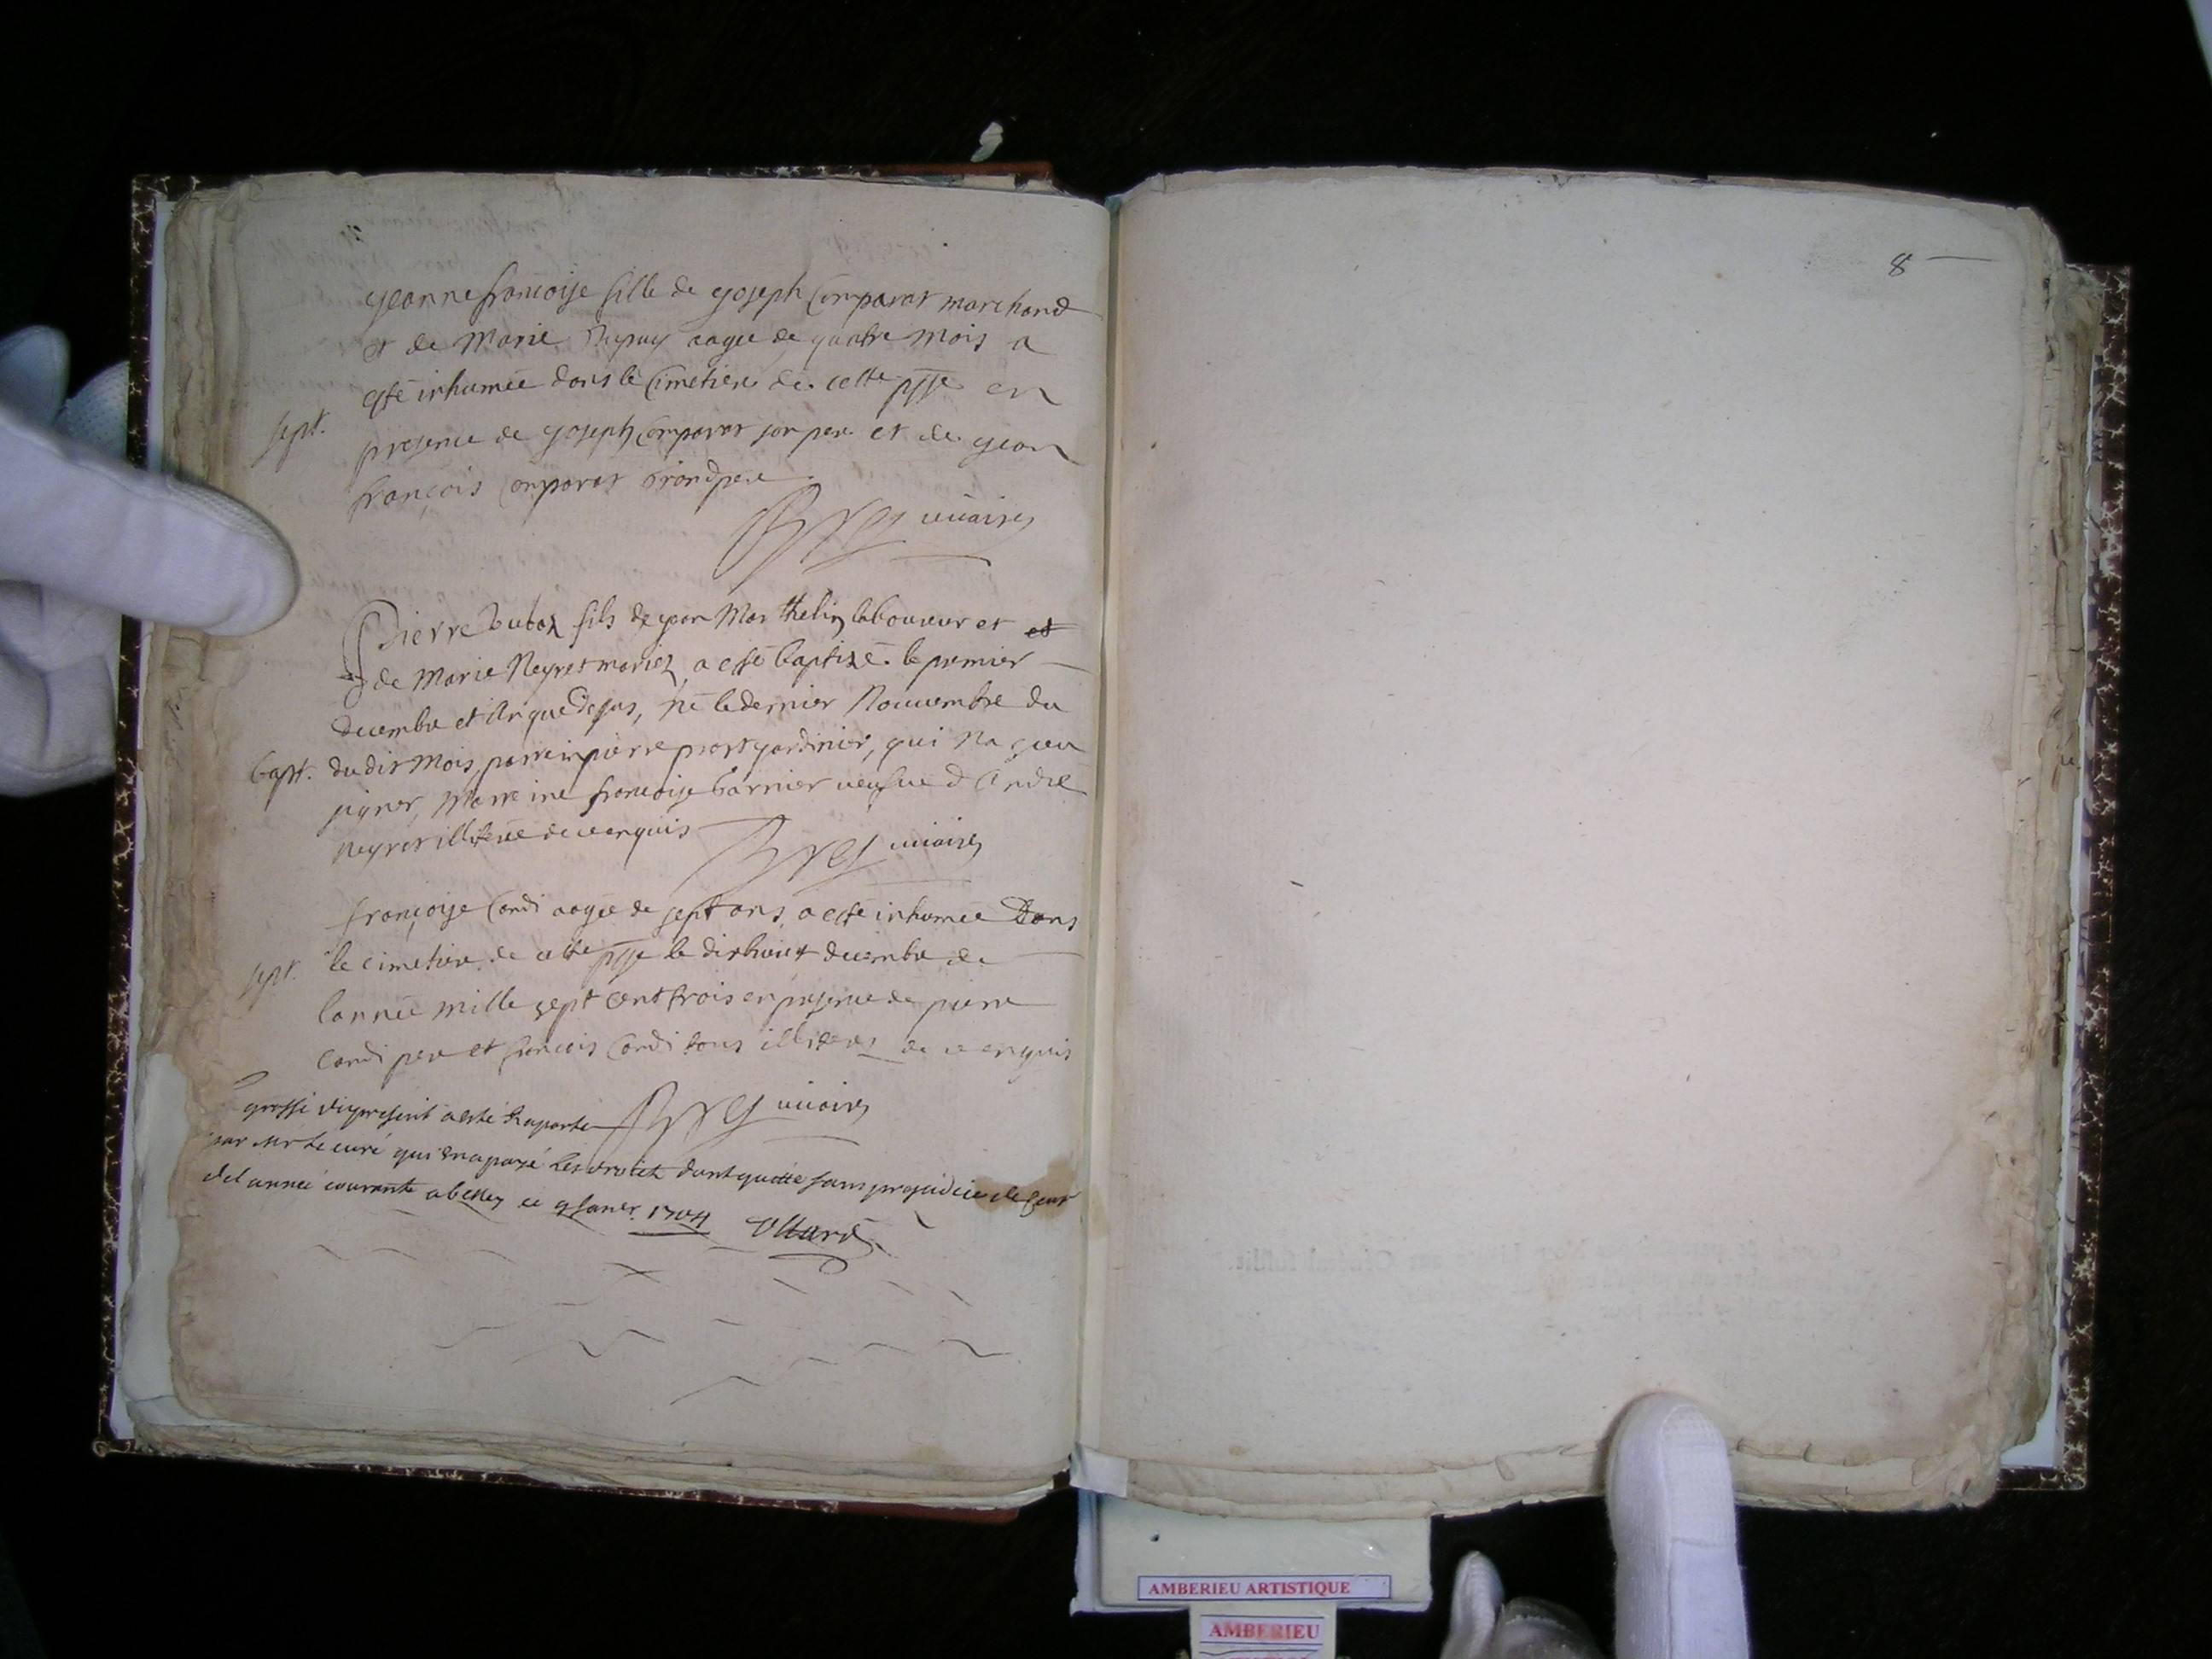 Jeanne francoise fille de Joseph Comparat marchand
et de Marie Dupuy aagee de quatre mois a
esté inhumée dans le Cimetiere de cette psse en
sept.
presence de Joseph Comparat son pere et de Jean
françois Comparat Grand pere
vicaire
Pierre fils de Jean Marthelin laboureur et et
de Marie Neyret mariez a esté baptizé le premier
decembre et An que Dessus, né le dernier Nouuembre du
Bapt.
dudit Mois, parrein pierre jardinier, qui na sceu
signer, Marreine francoise Garnier veufue d'André
neyret illiterée de ce enquis
vicaire
françoise Cordi aagée de sept ans, a esté inhumée Dans
sept.
le cimetiere de cette psse le dixhuict decembre de
lannée mille sept cent trois en presence de pierre
Cordi pere et francois Cordi tous illiteres de ce enquis
vicaire
grosse du present a esté Raportée
par Mr Le curé qui en a payé Les droicts dont quitte sans prejudice de ceux
de l année courante a belley ce 9 Janer. 1704
8
AMBERIEU ARTISTIQUE
AMBERIEU